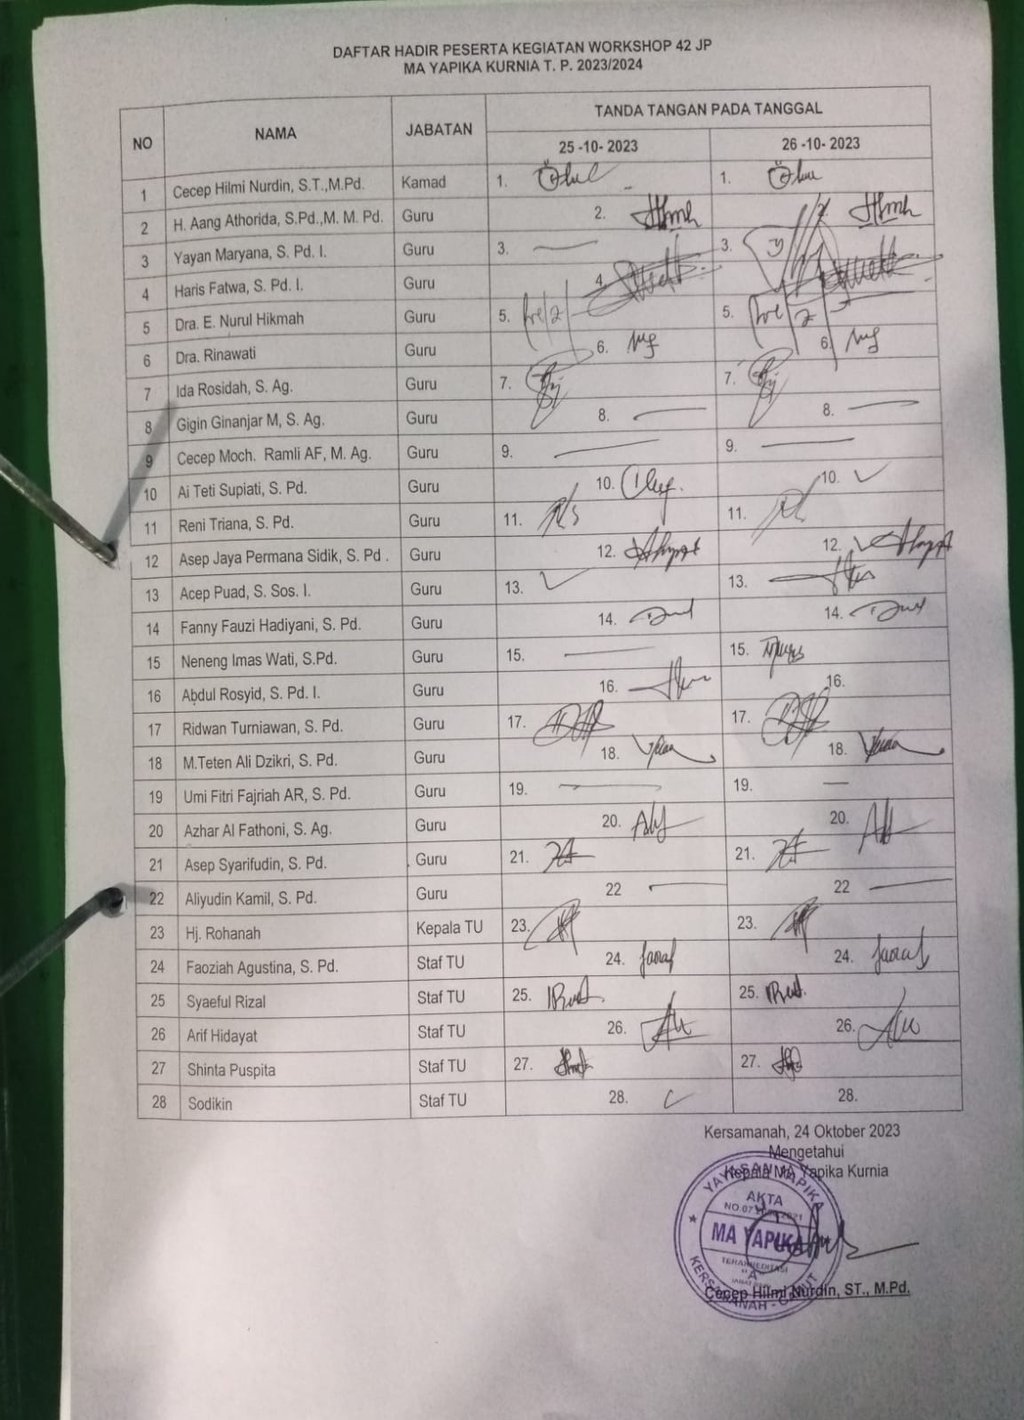 DAFTAR HADIR PESERTA KEGIATAN WORKSHOP 42 JP
MA YAPIKA KURNIA T. P. 2023/2024
NO NAMA JABATAN TANDA TANGAN PADA TANGGAL
25 -10- 2023 26 -10- 2023
1 Cecep Hilmi Nurdin, S.T.,M.Pd. Kamad 1. 1.
2 H. Aang Athorida, S.Pd.,M. M. Pd. Guru 2. 2.
3 Yayan Maryana, S. Pd. I. Guru 3. 3.
4 Haris Fatwa, S. Pd. I. Guru 4.
5 Dra. E. Nurul Hikmah Guru 5. 5.
6 Dra. Rinawati Guru 6. 6.
7 Ida Rosidah, S. Ag. Guru 7. 7.
8 Gigin Ginanjar M, S. Ag. Guru 8. 8.
9 Cecep Moch. Ramli AF, M. Ag. Guru 9. 9.
10 Ai Teti Supiati, S. Pd. Guru 10. 10.
11 Reni Triana, S. Pd. Guru 11. 11.
12 Asep Jaya Permana Sidik, S. Pd . Guru 12. 12.
13 Acep Puad, S. Sos. I. Guru 13. 13.
14 Fanny Fauzi Hadiyani, S. Pd. Guru 14. 14.
15 Neneng Imas Wati, S.Pd. Guru 15. 15.
16 Abdul Rosyid, S. Pd. I. Guru 16. 16.
17 Ridwan Turniawan, S. Pd. Guru 17. 17.
18 M.Teten Ali Dzikri, S. Pd. Guru 18. 18.
19 Umi Fitri Fajriah AR, S. Pd. Guru 19. 19.
20 Azhar Al Fathoni, S. Ag. Guru 20. 20.
21 Asep Syarifudin, S. Pd. Guru 21. 21.
22 Aliyudin Kamil, S. Pd. Guru 22 22
23 Hj. Rohanah Kepala TU 23. 23.
24 Faoziah Agustina, S. Pd. Staf TU 24. 24.
25 Syaeful Rizal Staf TU 25. 25.
26 Arif Hidayat Staf TU 26. 26.
27 Shinta Puspita Staf TU 27. 27.
28 Sodikin Staf TU 28. 28.
Kersamanah, 24 Oktober 2023
Mengetahui
Kepala MA Yapika Kurnia
YAYASAN YAPIKA
AKTA
MA YAPIKA
TERAKREDITASI
"A"
KERSAMANAH - GARUT
Cecep Hilmi Nurdin, ST., M.Pd.